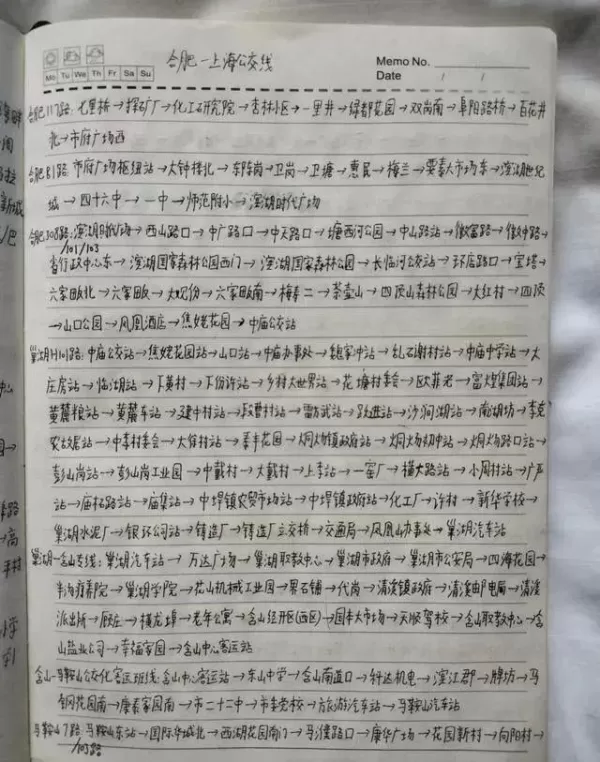 合肥—上海公交线
Memo No.
Mo Tu We Th Fr Sa Su
Date / /
合肥117路: 七里桥→探矿厂→化工研究院→杏林小区→一里井→绿都花园→双岗南→阜阳路桥→百花井
北→市府广场西
合肥B1路 市府广场枢纽站→大钟楼北→东陈岗→卫岗→卫塘→惠民→梅兰→要素大市场东→滨湖世纪
城→四十六中→一中→师范附小→滨湖时代广场
合肥308路: 滨湖时代广场→西山路口→中广路口→中天路口→塘西河公园→中山路站→徽富路→徽州路→
/101/103
省行政中心东→滨湖国家森林公园西门→滨湖国家森林公园→长临河公交站→环店路口→宝塔→
六家畈北→六家畈→大户份→六家畈南→梅寿二→茶壶山→四顶山森林公园→大红村→四顶
→山口公园→凤凰酒店→焦姥花园→中庙公交站
巢湖H101路: 中庙公交站→焦姥花园站→山口站→中庙办事处→魏家冲站→乱石谢村站→中庙中学站→大
庄房站→临湖站→下黄村→下份许站→乡村大世界站→花塘村委会→欧菲光→富煌集团站→
黄麓粮站→黄麓车站→建中村站→跃进站→沙涧湖站→南湖坊→李克
农故居站→中李村委会→大俞村站→季丰花园→烔炀镇政府站→烔炀初中站→烔炀路口站→
彭山岗站→彭山岗工业园→中戴村→大戴村→上李站→一窑厂→横大路站→小周村站→广严
站→庙柘路站→庙集站→中垾镇农贸市场站→中垾镇政府站→化工厂→许村→新华学校→
巢湖水泥厂→银环公司站→铸造厂→铸造厂立交桥→交通局→凤凰山办事处→巢湖汽车站
巢湖-含山专线: 巢湖汽车站→万达广场→巢湖职教中心→巢湖市政府→巢湖市公安局→四海花园→
半汤疗养院→巢湖学院→花山机械工业园→界石铺→代岗→清溪镇政府→清溪邮电局→清溪
派出所→厐庄→横龙埠→老年公寓→含山经开区(西区)→国丰大市场→天顺驾校→含山职教中心→含
山盐业公司→幸福家园→含山中心客运站
含山-马鞍山公交化客运班线: 含山中心客运站→东山中学→含山南道口→轩达机电→滨江郡→牌坊→马
钢花园南→康泰家园南→市二十二中→市委党校→旅游汽车站→马鞍山汽车站
马鞍山7路: 马鞍山东站→国际华城北→西湖花园南门→马濮路口→康华广场→花园新村→向阳村→
/103路